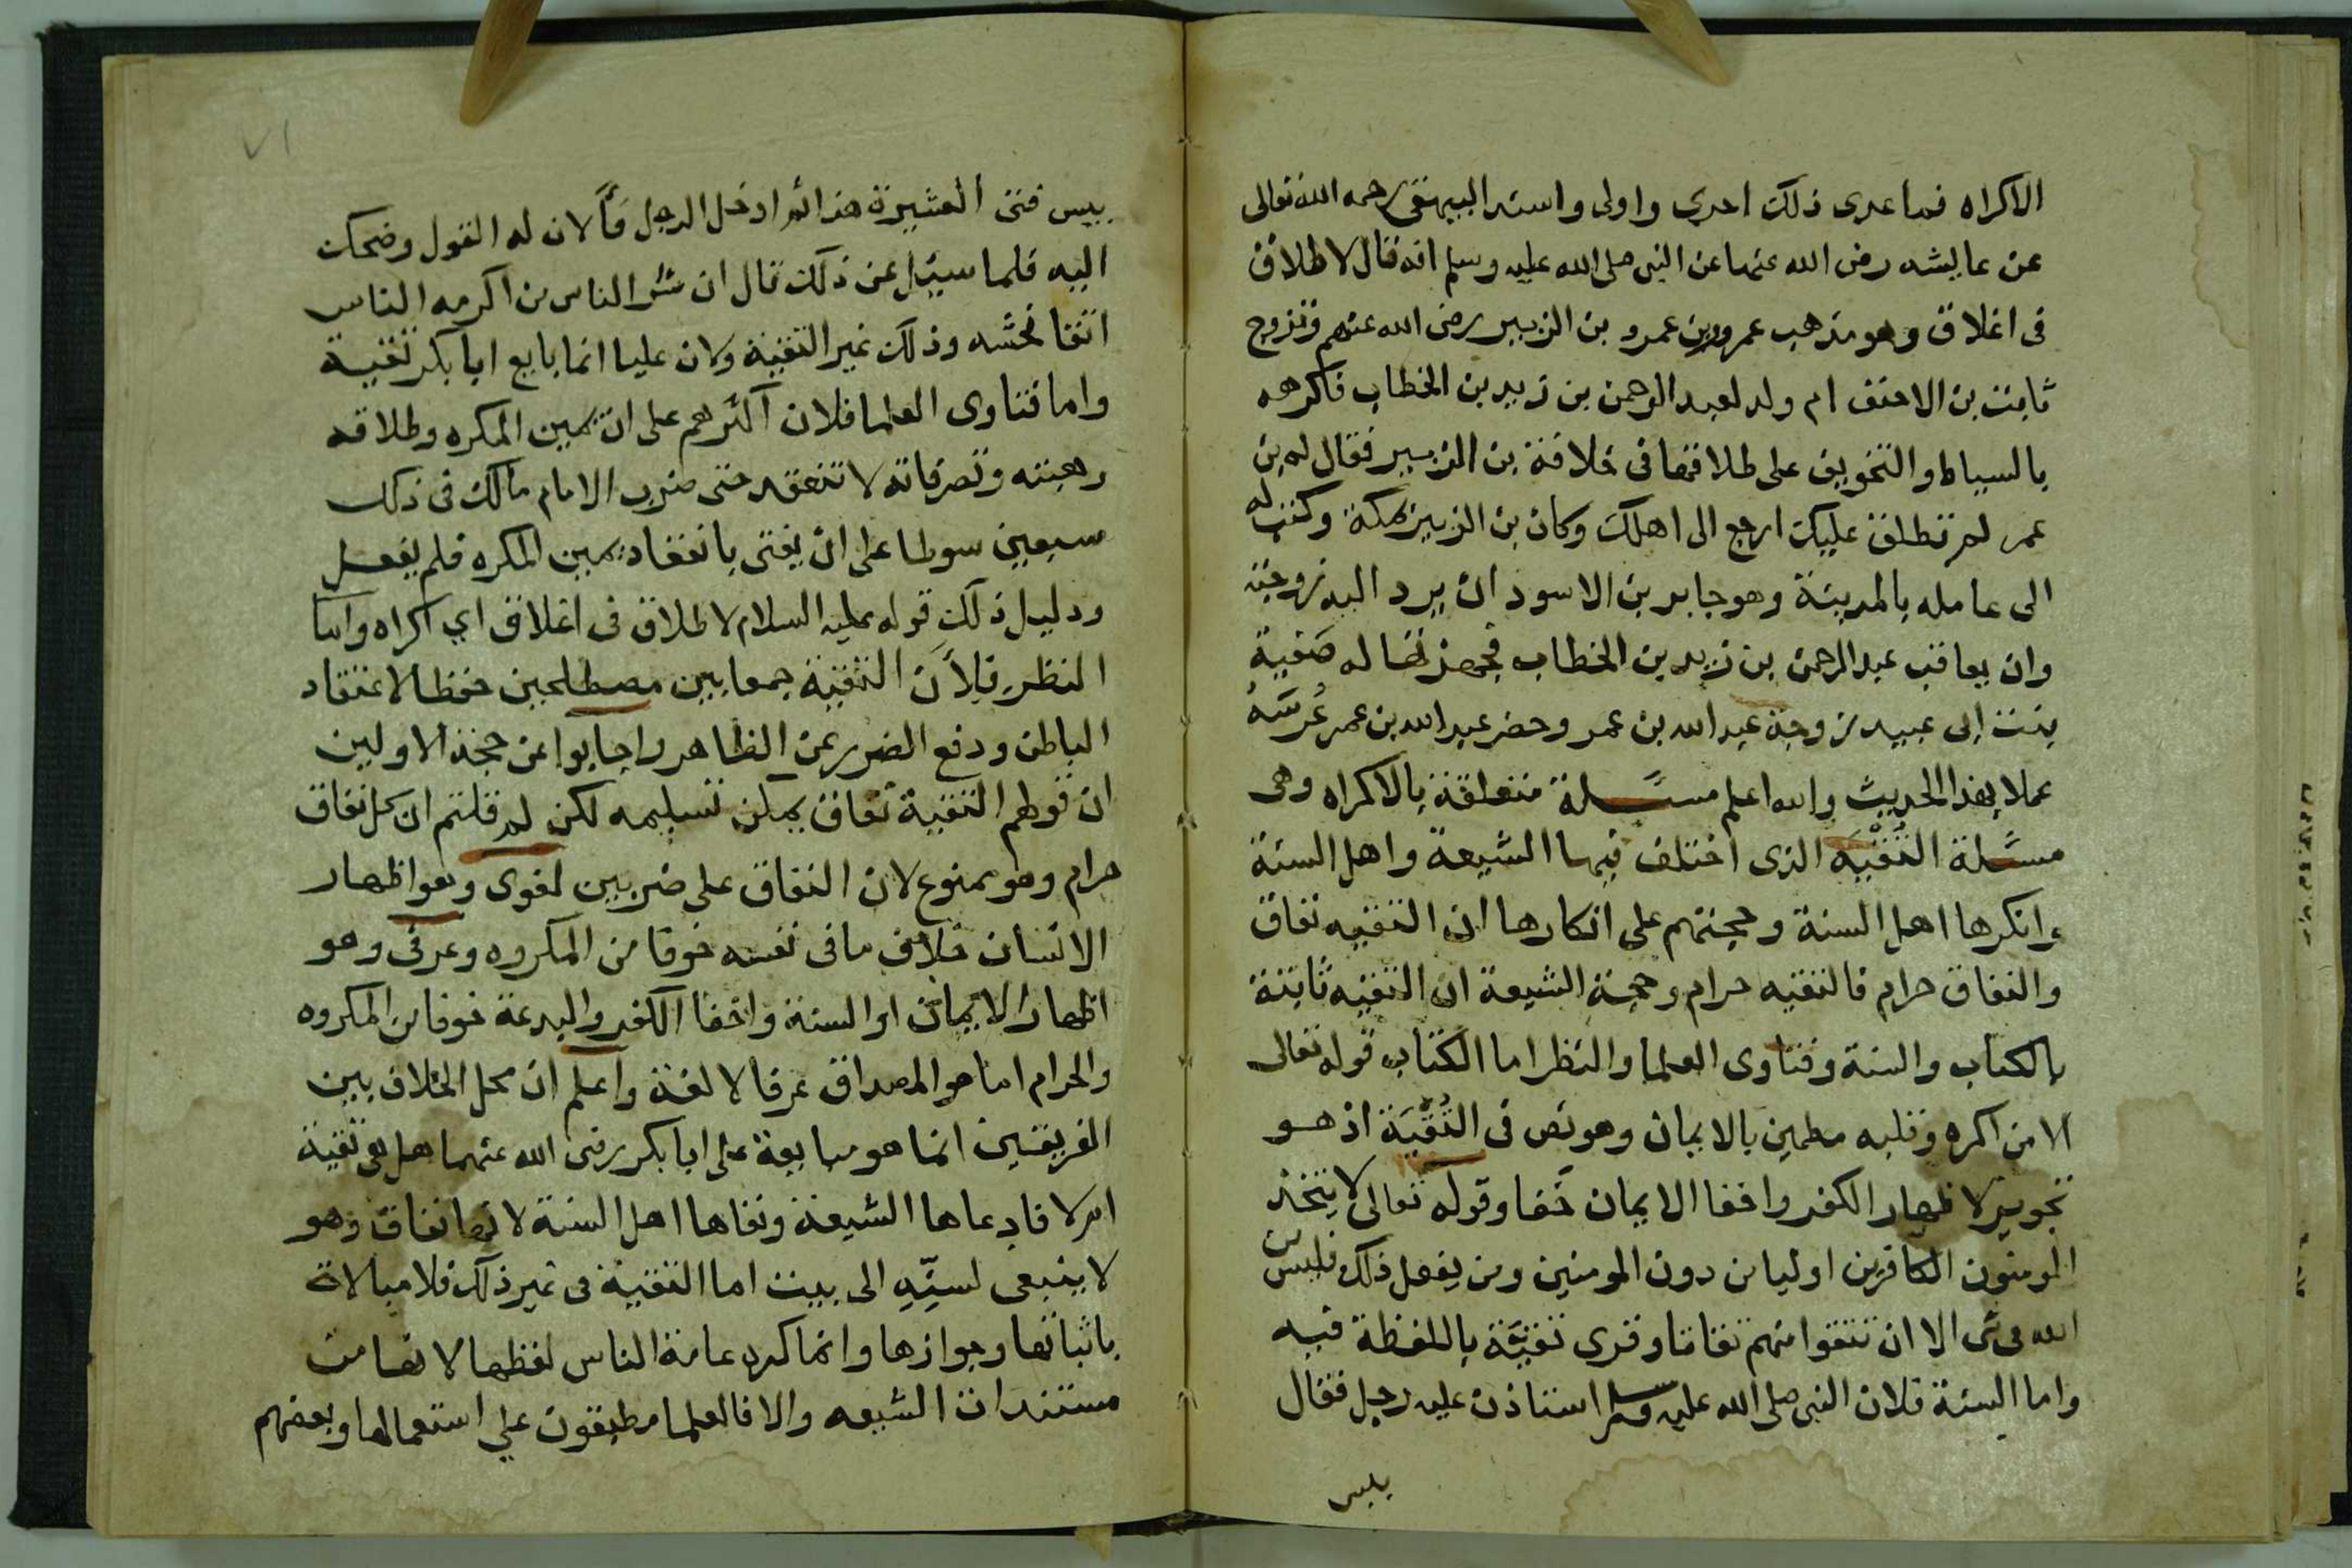 الاكراه فما عدى ذلك احرى واولى واسند البيهقى رحمه الله تعالى
عن عايشه رضى الله عنها عن النبى صلى الله عليه وسلم انه قال لا طلاق
فى اغلاق وهو مذهب عمر وبن عمر و بن الزبير رضى الله عنهم وتزوج
ثابت بن الاحنف ام ولد لعبد الرحمن بن زيد بن الخطاب فاكرهه
بالسياط والتخويف على طلاقها فى خلافة بن الزبير فقال له بن
عمر لم تطلق عليك ارجع الى اهلك وكان بن الزبير بمكة وكتب له
الى عامله بالمدينة وهو جابر بن الاسود ان يرد اليه زوجته
وان يعاقب عبد الرحمن بن زيد بن الخطاب فجهزتها له صفية
بنت ابى عبيد زوجة عبد الله بن عمر وحضر عبد الله بن عمر عُرسَهُ
عملا بهذا الحديث والله اعلم مسئلة متعلقة بالاكراه وهى
مسئلة التقيه الذى اختلف فيها الشيعة واهل السنة
وانكرها اهل السنة وحجتهم على انكارها ان التقيه نفاق
والنفاق حرام فالتقيه حرام وحجة الشيعة ان التقيه ثابتة
بالكتاب والسنة وفتاوى العلما والنظر اما الكتاب قوله تعالى
الا من اكره وقلبه مطمين بالايمان وهو نص فى التقية اذ هو
تجويز لاظهار الكفر واخفا الايمان خفا وقوله تعالى لا يتخذ
المومنون الكافرين اوليا من دون المومنين ومن يفعل ذلك فليس من
الله فى شى الا ان تتقوا منهم تقاتا وقرى تقيّة باللفظة فيه
واما السنة فلان النبى صلى الله عليه وسلم استاذن عليه رجل فقال
بيس
٧١
بيس فتى العشيرة هذا ثم ادخل الرجل فألان له القول وضحك
اليه فلما سيئل عن ذلك قال ان شر الناس من اكرمه الناس
اتقا فحشه وذلك غير التقية ولان عليا انما بايع ابا بكر تقية
واما فتاوى العلما فلان اكثرهم على ان يمين المكره وطلاقه
وهبته وتصرفاته لا تنعقد حتى ضرب الامام مالك فى ذلك
سبعين سوطا على ان يفتى بانعقاد يمين المكره فلم يفعل
ودليل ذلك قوله عليه السلام لا طلاق فى اغلاق اي اكراه واما
النظر فلأن التقية جمعا بين مصطلحين حفظا لاعتقاد
الباطن ودفع الضرر عن الظاهر واجابوا عن حجة الاولين
ان قولهم التقية نفاق يمكن تسليمه لكن لم قلتم ان كل نفاق
حرام وهو ممنوع لان النفاق على ضربين لغوى وهو اظهار
الانسان خلاف ما فى نفسه خوفا من المكروه وعرفى وهو
اظهار الايمان او السنة واخفا الكفر والبدعة خوفا من المكروه
والحرام انما هو المصداق عرفا لا لغة واعلم ان محل الخلاف بين
الفريقين انما هو مبايعة على ابا بكر رضى الله عنهما هل هى تقية
ام لا فادعاها الشيعة ونفاها اهل السنة لانها نفاق وهو
لا ينبغى لسنِّهِ الى بيت اما التقية فى غير ذلك فلا مبالاة
باثباتها وجوازها وانما كره عامة الناس لفظها لانها من
مستندات الشيعه والا فالعلما مطبقون على استعمالها وبعضهم